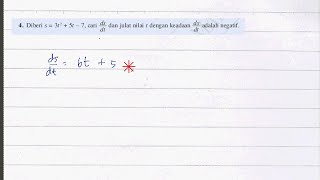 4. Diberi s = 3t² + 5t – 7, cari ds/dt dan julat nilai t dengan keadaan ds/dt adalah negatif.
ds/dt = 6t + 5 *